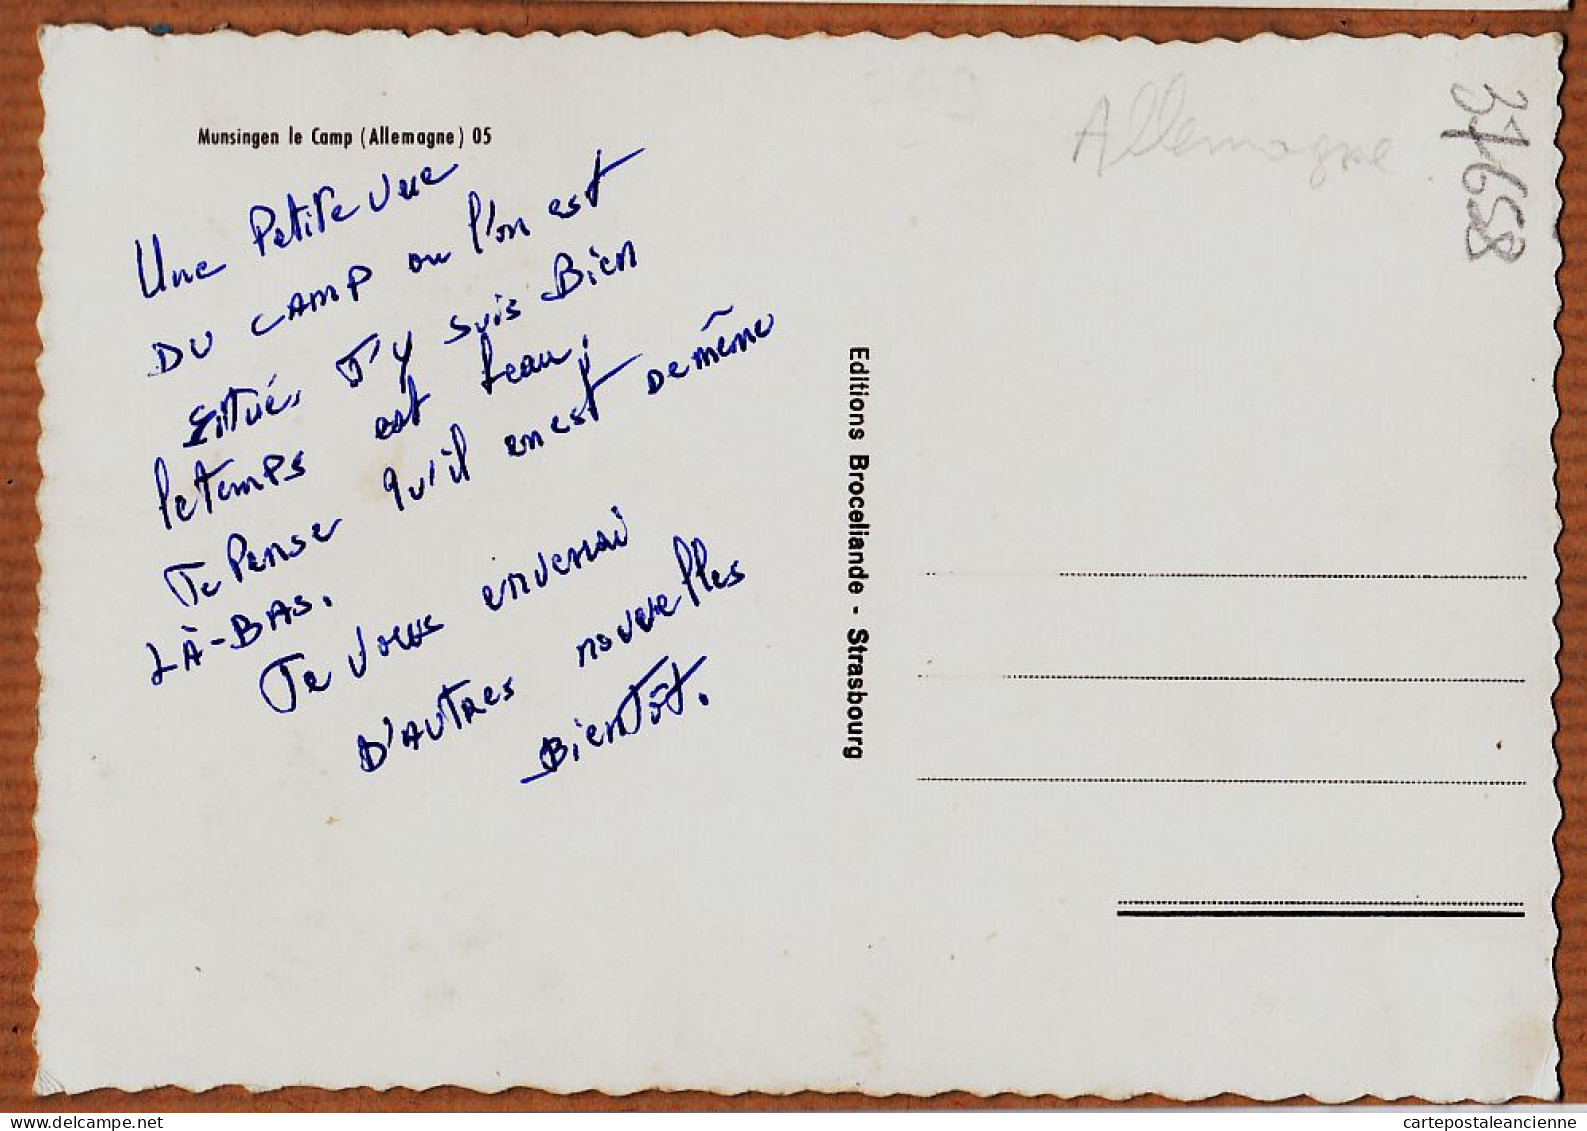 Munsingen le Camp (Allemagne) 05
Une Petite vue
DU CAMP ou l'on est
situé. J'y suis Bien
le temps est beau,
Je Pense qu'il en est de même
LÀ-BAS.
Je vous enverrai
D'AUTRES nouvelles
Bientôt.
Editions Broceliande - Strasbourg
Allemagne
37658
cartepostaleancienne